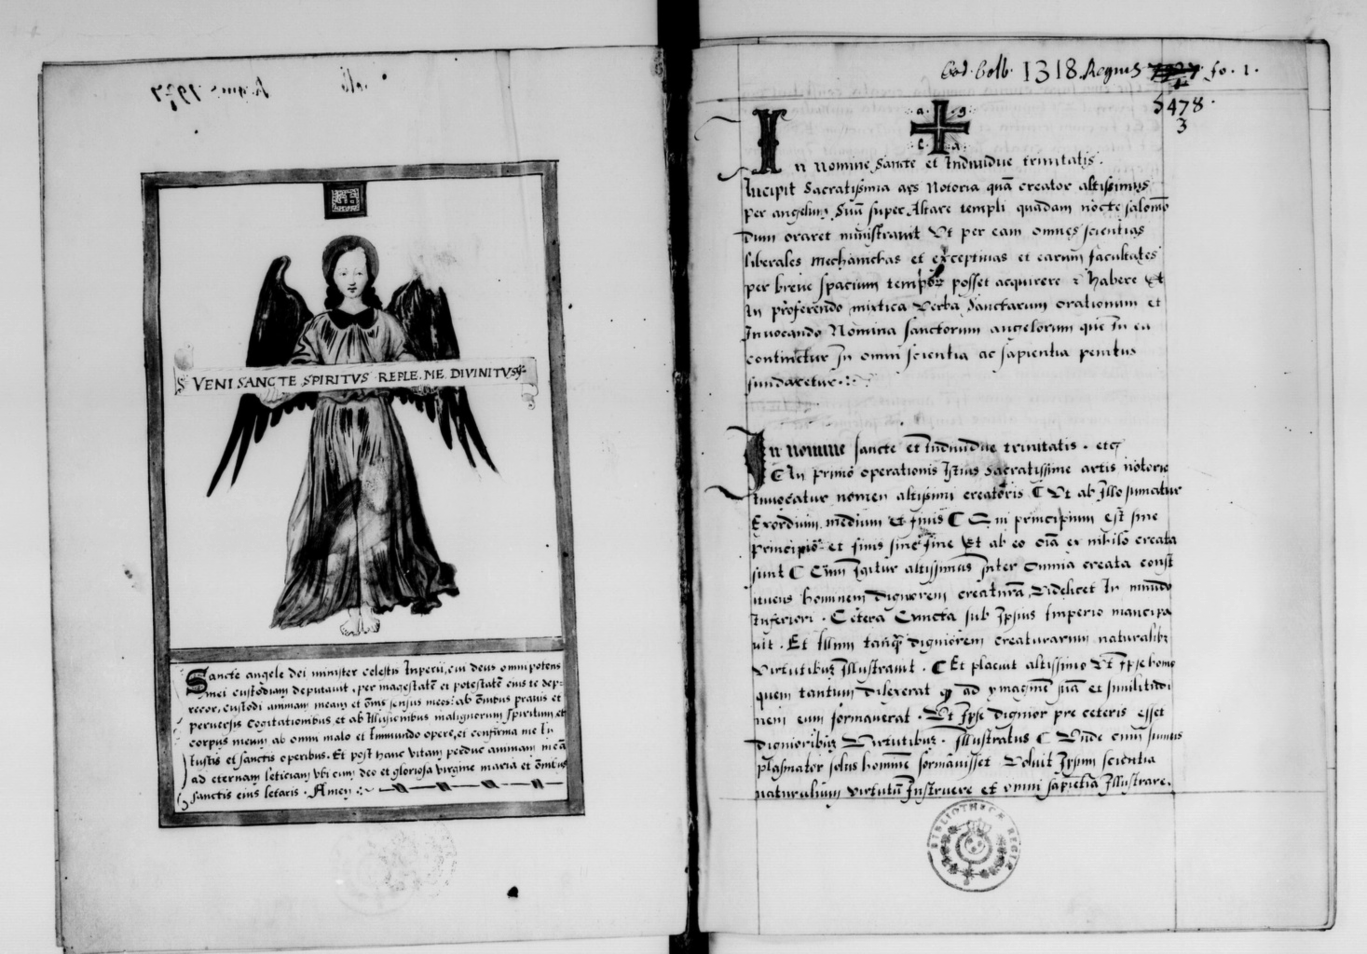 S VENI SANCTE SPIRITVS REPLE ME DIVINITVS
Sancte angele dei minister celestis Inperii, cui deus omnipotens
mei custodiam deputauit . per magestatē et potestatē eius te dep-
recor, custodi animam meam et om̄s sensus meos: ab om̄ibus prauis et
peruersis cogitationibus, et ab Illusionibus malignorum spirituum, et
corpus meum ab omni malo et Immundo opere, et confirma me In
Iustis et sanctis operibus. Et post hanc vitam perduc animam meā
ad eternam leticiam vbi cum deo et gloriosa virgine maria et om̄ibus
sanctis eius letaris . Amen
Cod. Colb. 1318. Regius fo. 1.
5478.
3
a g
l a
In nomine sancte et Indiuidue trinitatis.
Incipit Sacratissima ars Notoria quā creator altissimus
per angelum suū super Altare templi quadam nocte salomōi
dum oraret ministrauit Vt per eam omnes scientias
liberales mechanichas et exceptiuas et earum facultates
per breue spacium temporis posset acquirere et habere Et
In proferendo mistica Verba sanctarum orationum et
Inuocando Nomina sanctorum angelorum que In ea
continetur In omni scientia ac sapientia penitus
fundaretur.
In nomine sancte et Indiuidue trinitatis . etc
In primo operationis Istius Sacratissime artis notorie
Inuocatur nomen altissimi creatoris Vt ab Illo sumatur
Exordium, medium et finis Qui principium est sine
principio et finis sine fine Et ab eo oīa ex nihilo creata
sunt Cum Igitur altissimus Inter Omnia creata const
ituens hominem digniorem creaturā Videlicet In mundo
Inferiori . Cetera Cuncta sub Ipsius Imperio mancipa
uit . Et Illum tanq̄ digniorem creaturarum naturalibz
Virtutibuz Illustrauit . Et placuit altissimo Vt Ipse homo
quem tantum dilexerat ad ymaginē suā et similitudi
nem eum formauerat . Vt Ipse dignior pre ceteris esset
dignioribuz Virtutibuz . Illustratus Vnde cum summus
plasmator solus hominē formauisset Voluit Ipsum scientia
naturalium virtutū Instruere et omni sapiētiā Illustrare.
BIBLIOTHECÆ REGIÆ